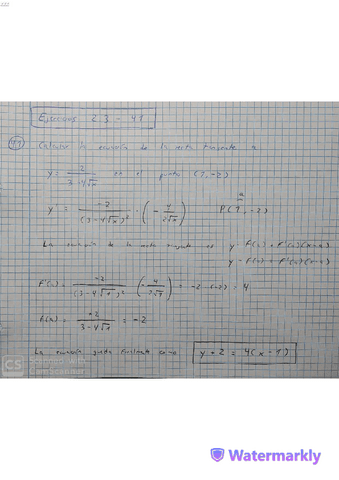 Ejercicios 23 - 41
41) Calcular la ecuación de la recta tangente a
y = 2 / (3 - 4√x) en el punto (1, -2)
y' = -2 / (3 - 4√x)² · (- 4 / 2√x) P(1, -2)
La ecuación de la recta tangente es y - f(a) = f'(a)(x-a)
y - f(1) = f'(1)(x-1)
-2 / (3 - 4√1)² (- 4 / 2√1) = -2 · (-2) = 4
= -2 / 3 - 4√1 = -2
La ecuación queda finalmente como y + 2 = 4(x - 1)
CS
Watermarkly